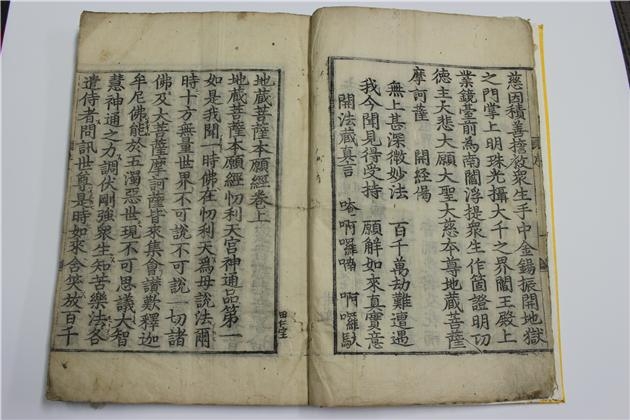 慈因積善誓救衆生手中金錫振開地獄
之門掌上明珠光攝大千之界閻王殿上
業鏡臺前為南閻浮提衆生作箇證明功
德主大悲大願大聖大慈本尊地藏菩薩
摩訶薩 開經偈
無上甚深微妙法 百千萬劫難遭遇
我今聞見得受持 願解如來真實意
開法藏真言 唵 啊囉喃 啊囉馱
地藏菩薩本願經卷上
地藏菩薩本願經忉利天宮神通品第一
如是我聞一時佛在忉利天為母說法爾
時十方無量世界不可說不可說一切諸
佛及大菩薩摩訶薩皆來集會讃歎釋迦
牟尼佛能於五濁惡世現不可思議大智
慧神通之力調伏剛強衆生知苦樂法各
遣侍者問訊世尊是時如來含笑放百千